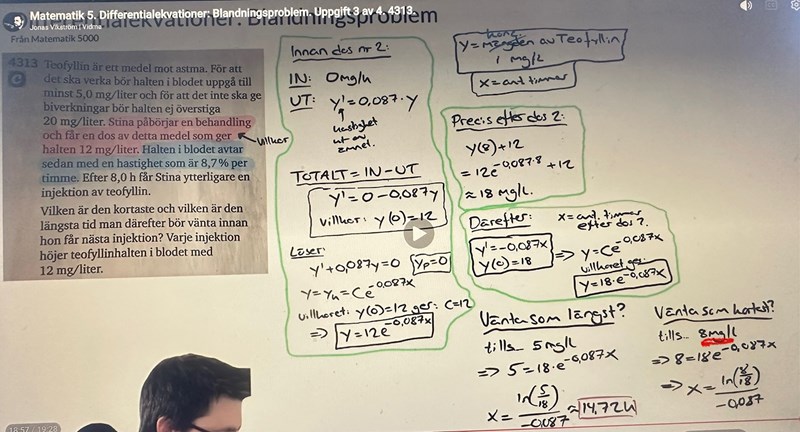 Matematik 5. Differentialekvationer: Blandningsproblem. Uppgift 3 av 4. 4313.
Jonas Vikström | Vidma
Från Matematik 5000
4313 Teofyllin är ett medel mot astma. För att
det ska verka bör halten i blodet uppgå till
minst 5,0 mg/liter och för att det inte ska ge
biverkningar bör halten ej överstiga
20 mg/liter. Stina påbörjar en behandling
och får en dos av detta medel som ger
halten 12 mg/liter. Halten i blodet avtar
sedan med en hastighet som är 8,7% per
timme. Efter 8,0 h får Stina ytterligare en
injektion av teofyllin.
Vilken är den kortaste och vilken är den
längsta tid man därefter bör vänta innan
hon får nästa injektion? Varje injektion
höjer teofyllinhalten i blodet med
12 mg/liter.
villkor
Innan dos nr 2:
IN: 0mg/h
UT: y' = 0,087·y
hastighet
ut av
ämnet.
TOTALT = IN - UT
y' = 0 - 0,087y
villkor: y(0) = 12
Löser:
y' + 0,087y = 0 yp = 0
y = yh = Ce^-0,087x
villkoret: y(0)=12 ger: C=12
=> y = 12e^-0,087x
konc.
y = mängden av Teofyllin
i mg/L
x = ant timmar
Precis efter dos 2:
y(8) + 12
= 12e^-0,087·8 + 12
≈ 18 mg/L.
Därefter: x = ant. timmar
efter dos 2.
y' = -0,087x
y(0) = 18
=> y = Ce^-0,087x
villkoret ger:
y = 18·e^-0,087x
Vänta som längst?
tills... 5mg/L
=> 5 = 18·e^-0,087x
x = ln(5/18)/-0,087 ≈ 14,72h
Vänta som kortast?
tills... 8mg/L
=> 8 = 18e^-0,087x
=> x = ln(8/18)/-0,087
18:57 / 19:28